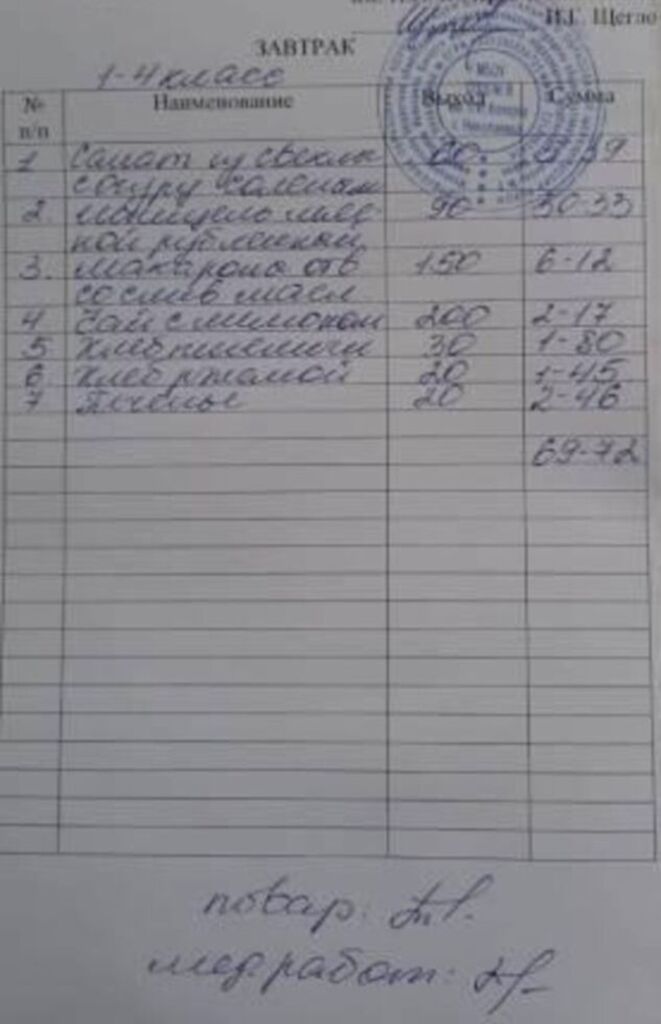 И.Г. Щегло
ЗАВТРАК
1-4 класс
№ п/п Наименование Выход Сумма
1 Салат из свеклы 60
с огур солёным
2 90 50-33
ной рубленный
3. Макароны отв 150 6-12
со слив масл
4 Чай с лимоном 200 2-17
5 Хлеб пшеничн 30 1-80
6 Хлеб ржаной 20 1-45
7 Печенье 20 2-46
69-72
повар:
мед работ: